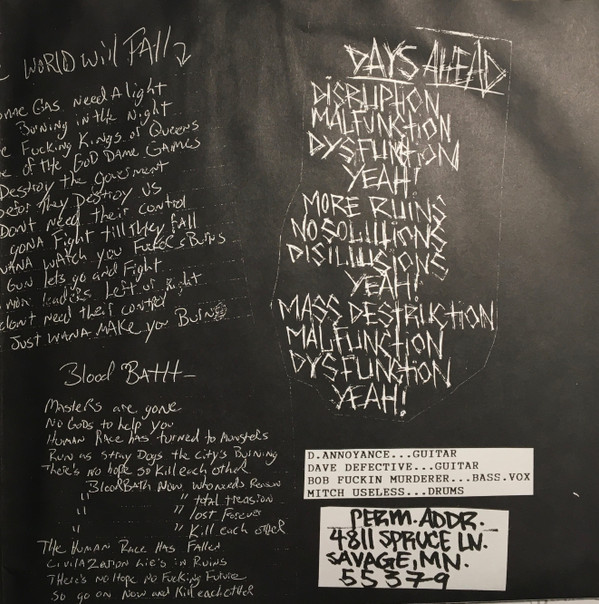 WORLD Will FAll
GAS NEED A light
Burning in the Night
Fucking Kings of Queens
of the GOD DAME GAMES
Destroy the Goverment
befor they Destroy us
Dont need their control
gONA Fight till they fall
WANA WATCH you FUCKeRS BuRN
GUN lets go and Fight
leaders Left or Right
dont need their control
JUST WANA MAKE you BuRN
Blood BATH-
MasteRs are gone
NO GODS to help you
Human Race has turned to Monsters
Run as stray Dogs the City's Burning
There's no hope so Kill each other
BloodBATH Now who needs Reason
" " total treason
" " lost Forever
" " Kill each other
The Human Race Has Fallen
CivilaZation Lie's in Ruins
THere's No Hope No Fucking Future
So go on Now and Kill each other
DAYS AHEAD
DISRUPTION
MALFUNCTION
DYSFUNCTION
YEAH!
MORE RUINS
NO SOLUTIONS
DISILLUSIONS
YEAH!
MASS DESTRUCTION
MALFUNCTION
DYSFUNCTION
YEAH!
D.ANNOYANCE...GUITAR
DAVE DEFECTIVE...GUITAR
BOB FUCKIN MURDERER...BASS.VOX
MITCH USELESS...DRUMS
PERM. ADDR.
4811 SPRUCE LN.
SAVAGE, MN.
55379